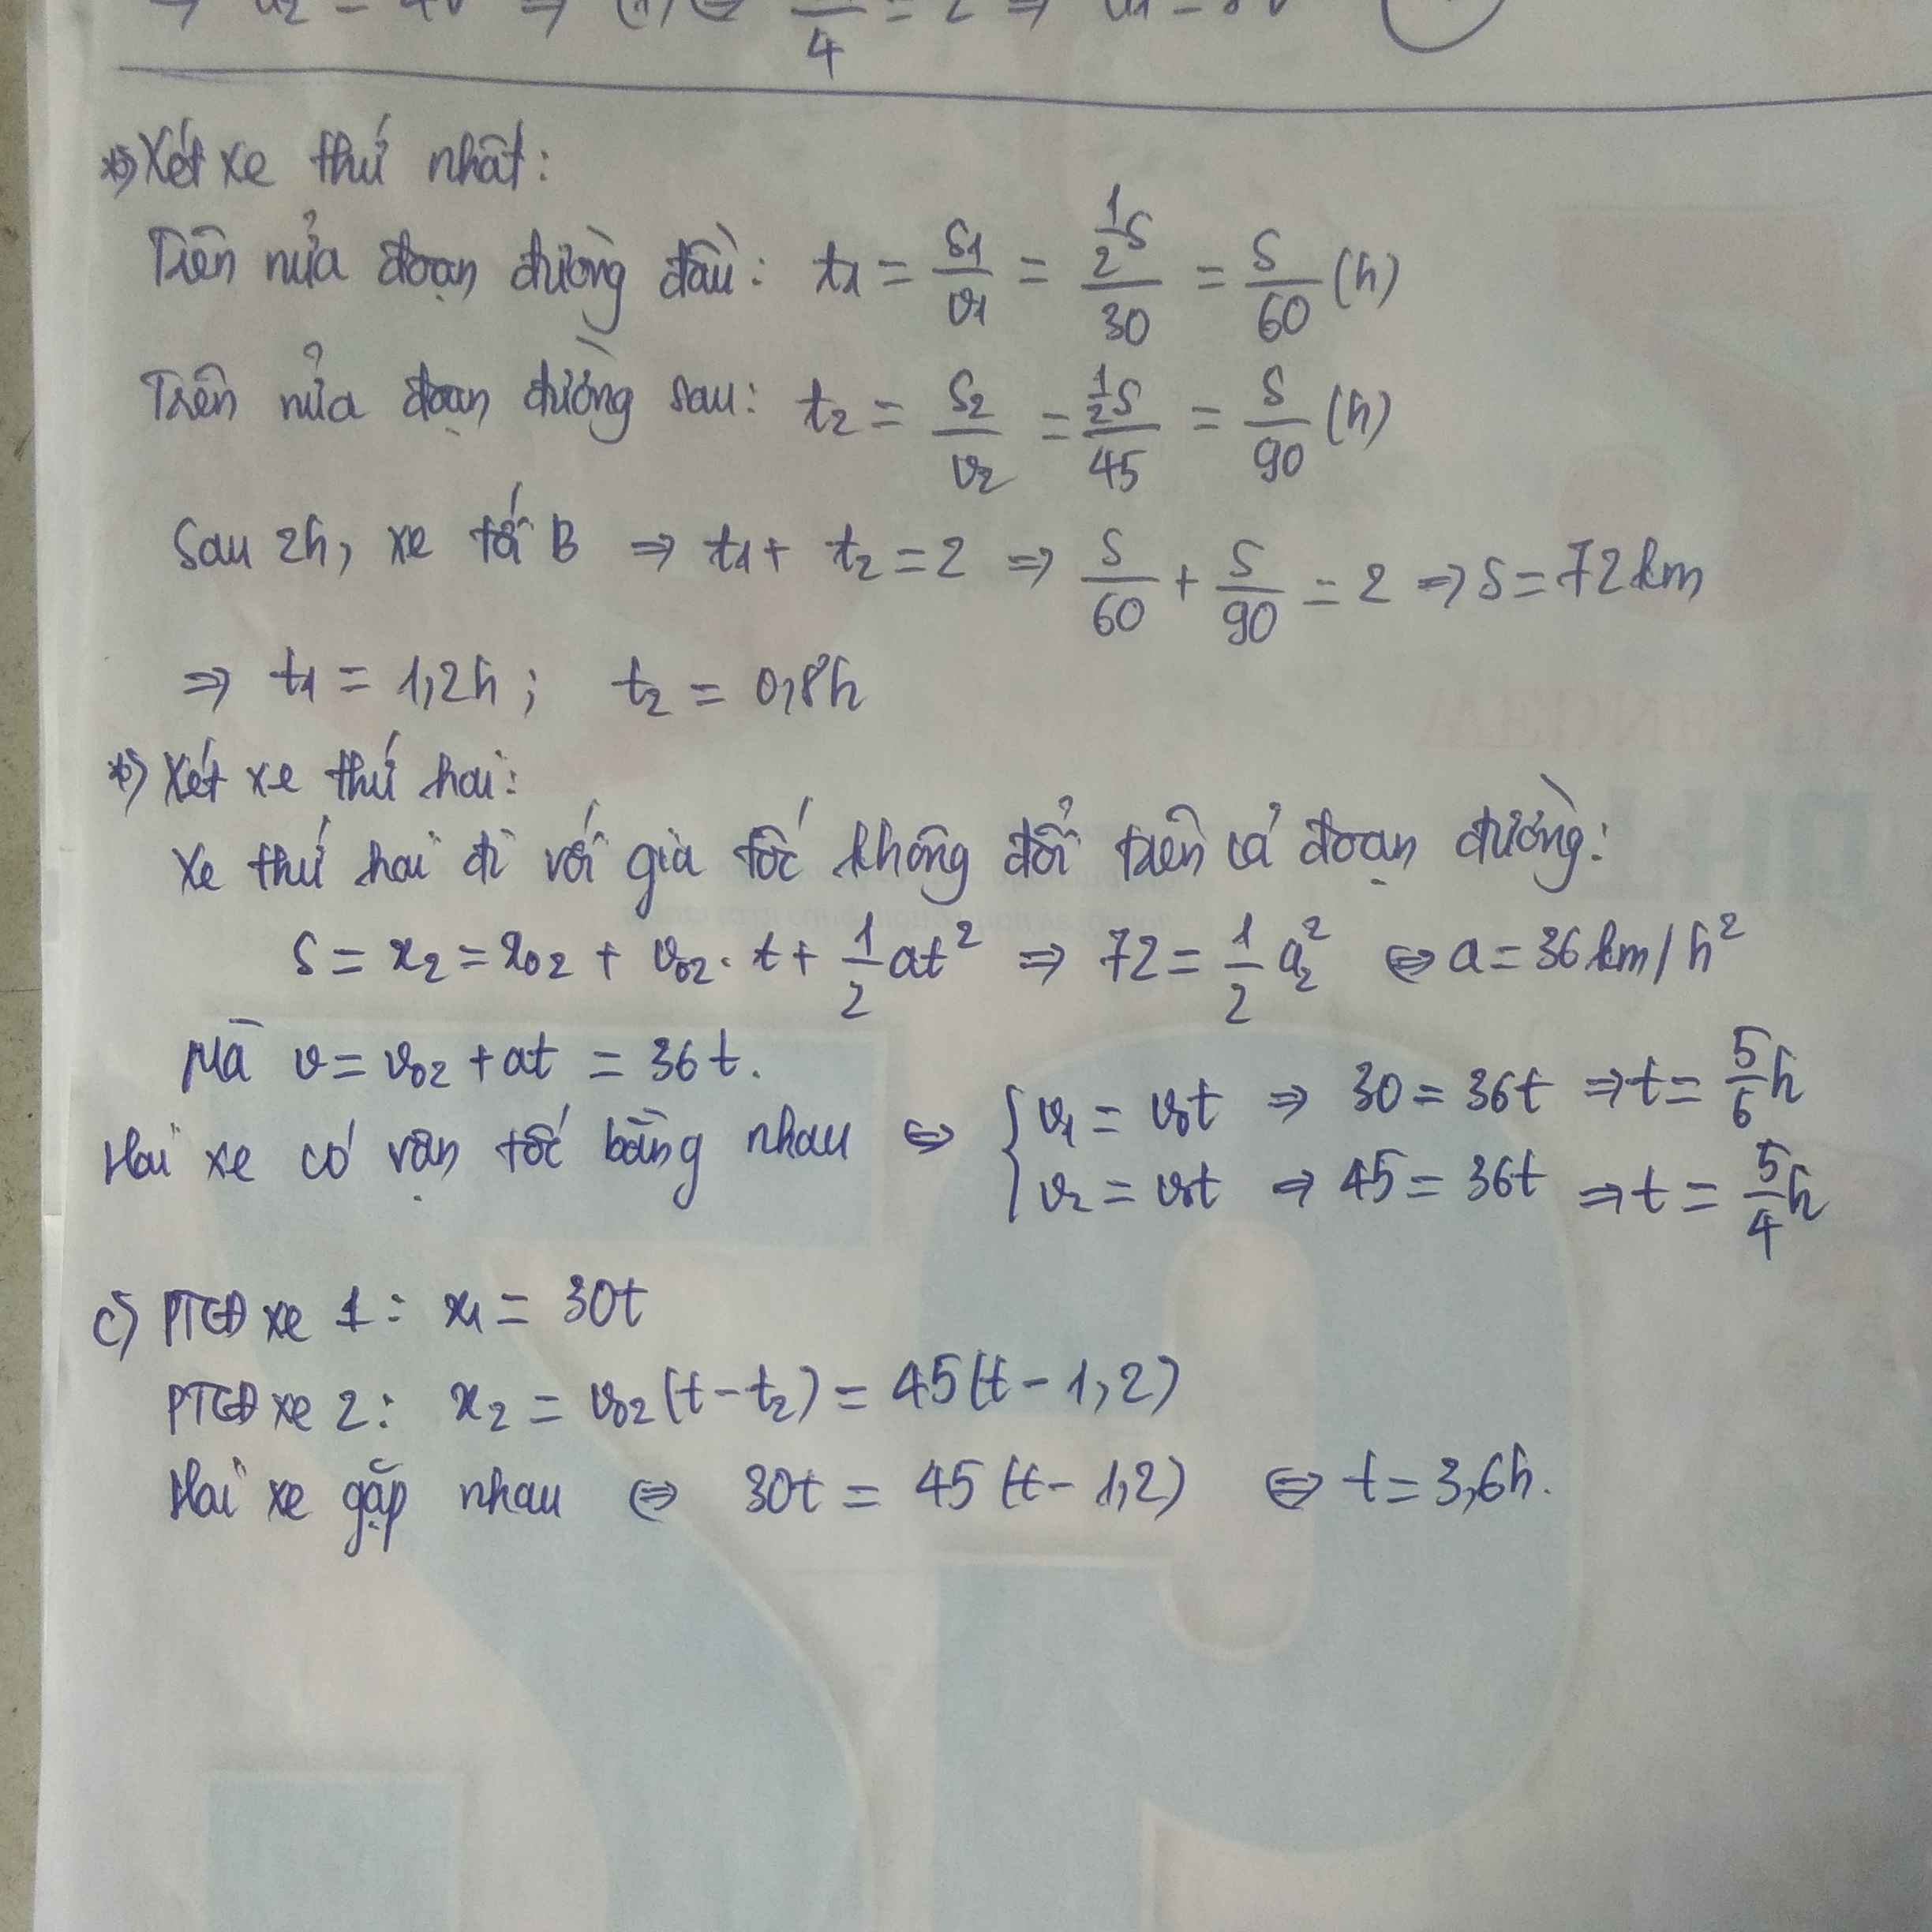 4
*) Xét xe thứ nhất:
Trên nửa đoạn đường đầu: t1 = S1/v1 = 1/2 S/30 = S/60 (h)
Trên nửa đoạn đường sau: t2 = S2/v2 = 1/2 S/45 = S/90 (h)
Sau 2h, xe tới B ⇒ t1 + t2 = 2 ⇒ S/60 + S/90 = 2 ⇒ S = 72 km
⇒ t1 = 1,2h ; t2 = 0,8h
*) Xét xe thứ hai:
Xe thứ hai đi với gia tốc không đổi trên cả đoạn đường:
S = x2 = x02 + v02 . t + 1/2 at² ⇒ 72 = 1/2 a2² ⇔ a = 36 km/h²
Mà v = v02 + at = 36t.
Hai xe có vận tốc bằng nhau ⇔ { v1 = vt ⇒ 30 = 36t ⇒ t = 5/6 h
v2 = vt ⇒ 45 = 36t ⇒ t = 5/4 h
c) PTCĐ xe 1 : x1 = 30t
PTCĐ xe 2 : x2 = v02 (t - t2) = 45(t - 1,2)
Hai xe gặp nhau ⇔ 30t = 45 (t - 1,2) ⇔ t = 3,6h.